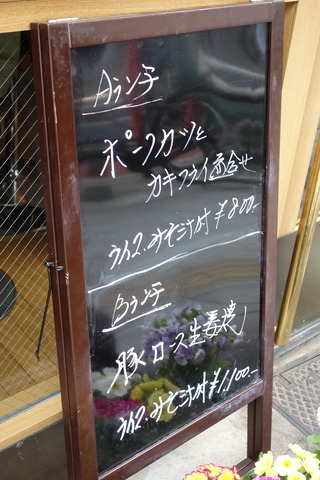 Aランチ
ポークカツと
カキフライ盛合せ
ライス.みそ汁付¥800.-
Bランチ
豚ロース生姜焼
ライス.みそ汁付¥1,100.-